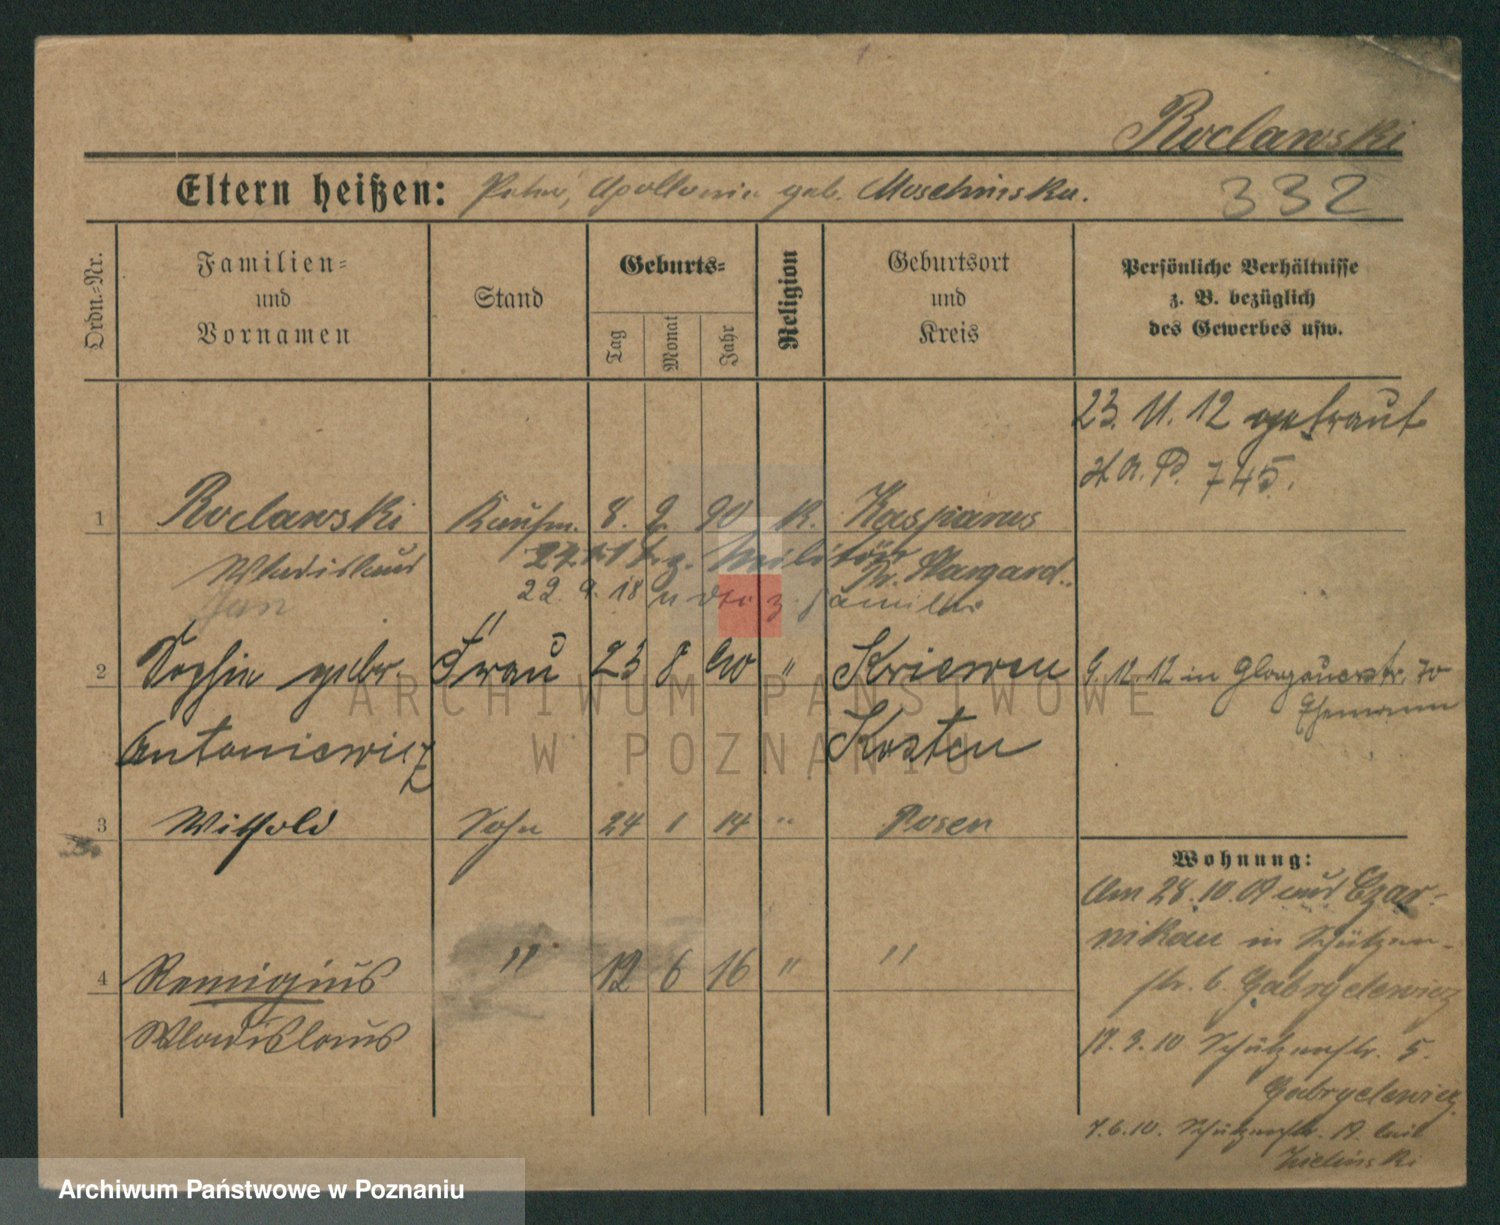 Roclawski
Eltern heißen: Peter, Apollonia geb. Moschinska.
332
Ordn.-Nr.
Familien-
und
Vornamen
Stand
Geburts-
Tag
Monat
Jahr
Religion
Geburtsort
und
Kreis
Persönliche Verhältnisse
z. B. bezüglich
des Gewerbes usw.
23. 11. 12 getraut
745.
1 Roclawski Kaufm. 8. 2. 90 K. Kasparus
Wladislaus z. Militär
Jan Pr. Stargard.
22. 9. 18 z. Familie
2 Sophie gebr. Frau 23 8 90 " Kriewen
9. 12. 12 in Glogauerstr. 70
Ehemann
Antoniewicz Kosten
3 Withold Sohn 24 1 14 " Posen
4 Remigius " 12 6 16 " "
Wladislaus
Wohnung:
Am 28. 10. 09 aus Czar-
nikau in Schützen-
str. 6 Gabryelewicz
19. 3. 10 Schützenstr. 5.
Gabryelewicz
7. 6. 10. Schützenstr. 19 bei
Zielinski
ARCHIWUM PAŃSTWOWE
W POZNANIU
Archiwum Państwowe w Poznaniu